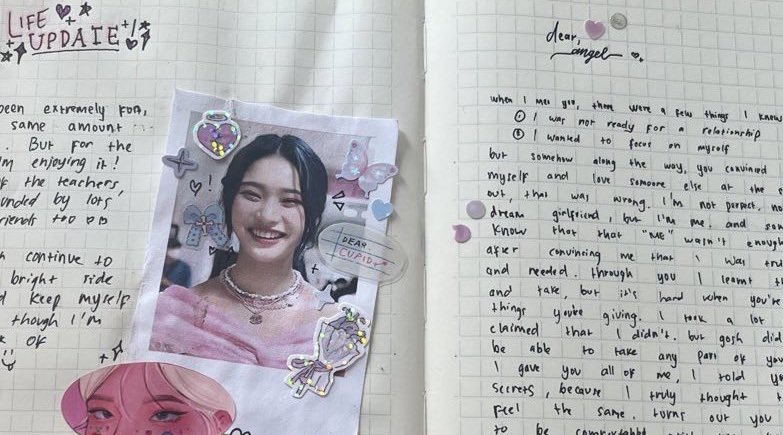 LIFE
UPDATE
been extremely fun,
same amount
. But for the
I'm enjoying it!
of the teachers,
unded by lots
riends too
continue to
bright side
d keep myself
though I'm
OK
DEAR
CUPID
dear,
angel
when I met you, there were a few things I knew
① I was not ready for a relationship
② I wanted to focus on myself
but somehow along the way, you convinced
myself and love someone else at the
out, that was wrong. I'm not perfect, no
dream girlfriend, but I'm me. and som
know that that "ME" wasn't enoug
after convincing me that I was tru
and needed. through you I learnt t
and take, but it's hard when you're
things you're giving. I took a lot
claimed that I didn't. but gosh did
be able to take any part of you
I gave you all of me, I told yo
secrets, because I truly thought t
feel the same. turns out you
to be comfortable